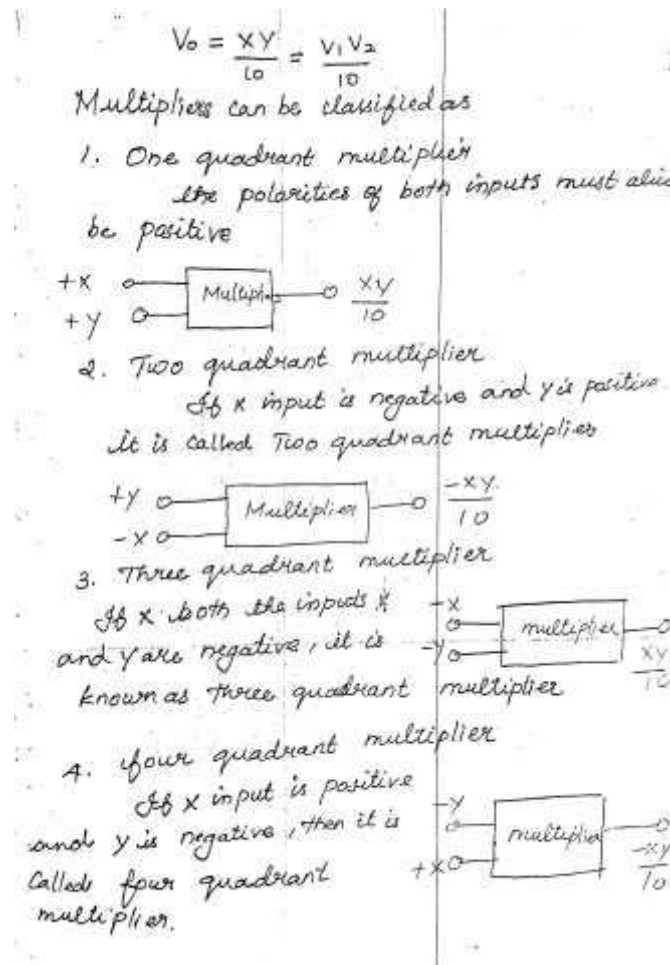 V₀ = XY/10 = V₁V₂/10
Multipliers can be classified as
1. One quadrant multiplier
the polarities of both inputs must
be positive
+X
+Y
Multiplie
XY/10
2. Two quadrant multiplier
If x input is negative and y is positive
it is called Two quadrant multiplier
+Y
-X
Multiplier
-XY/10
3. Three quadrant multiplier
If x both the inputs x
and y are negative, it is
known as three quadrant multiplier
-X
-Y
multiplier
XY/10
4. four quadrant multiplier
If x input is positive
and y is negative, then it is
called four quadrant
multiplier.
-Y
+X
multiplier
-XY/10